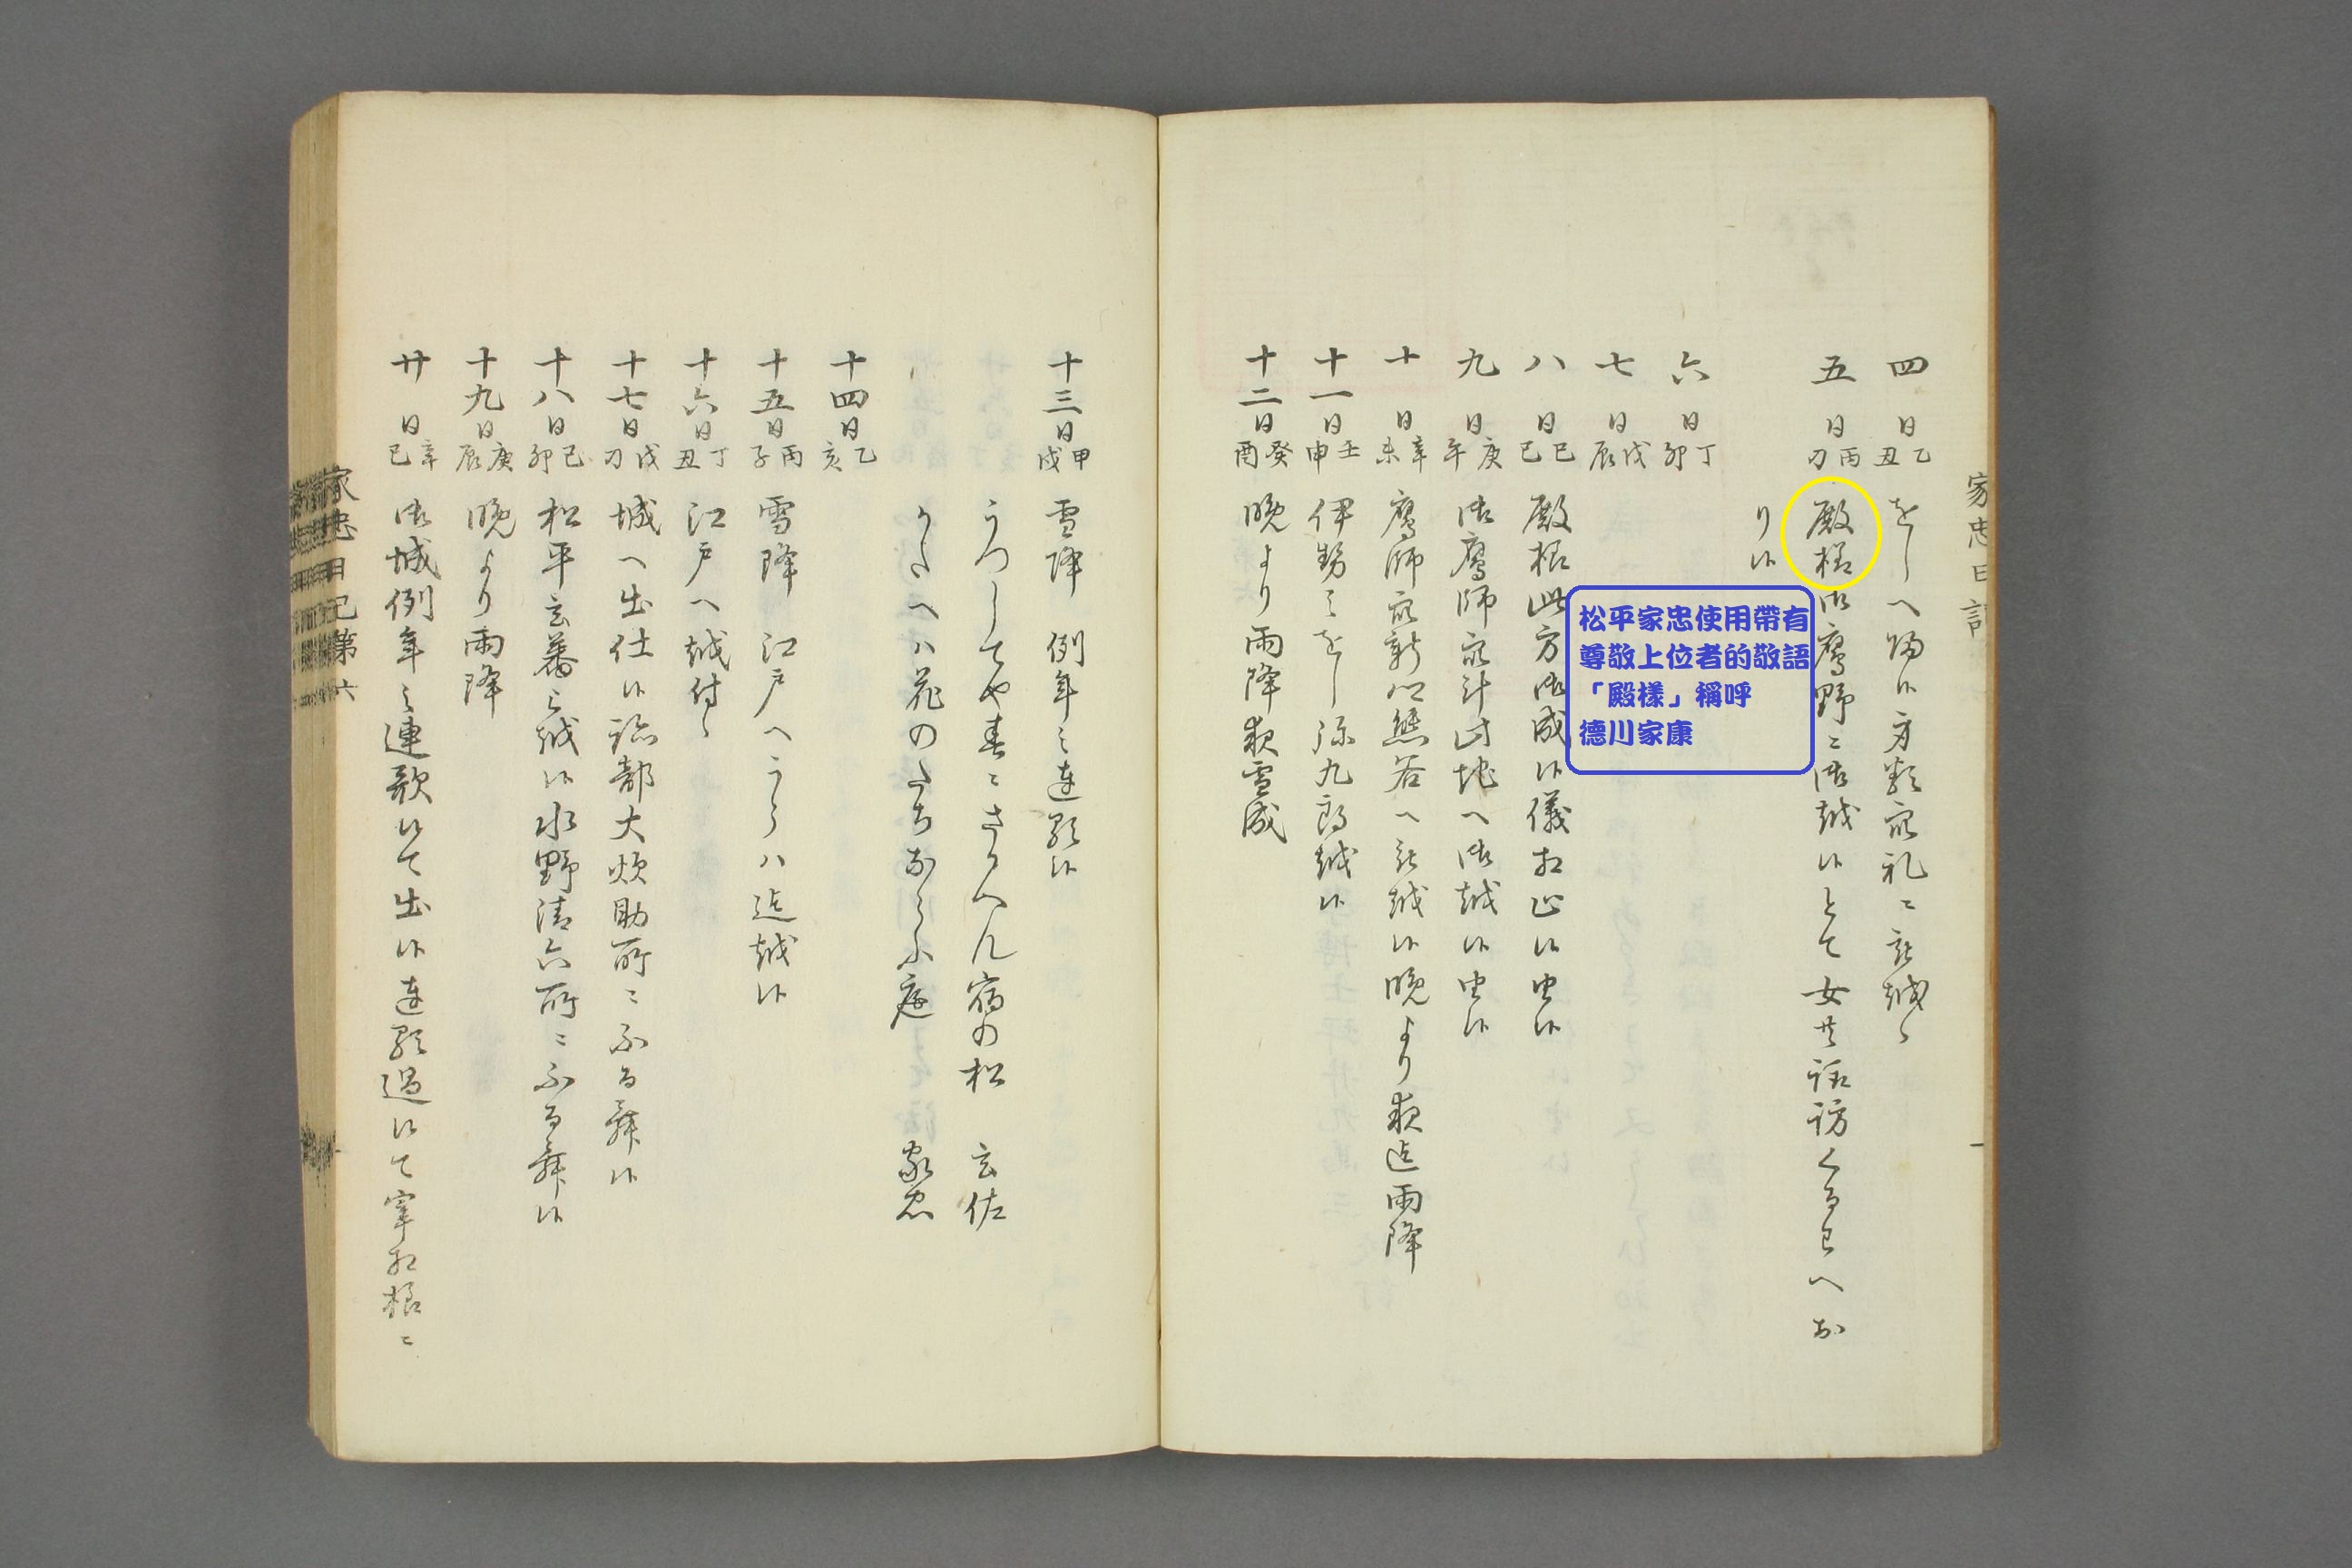 家忠日記
四日乙丑 をしへ帰候方、類衆礼ニ被越候
五日丙刀 殿様御鷹野ニ御越候とて女共諏訪くるわへお
り候
六日丁卯
七日戊辰
八日己巳 殿様此方御成候儀相止候由候
九日庚午 御鷹師衆計此地へ御越候由候
十日辛未 鷹師衆新心熊谷へ被越候晩より夜迄雨降
十一日壬申 伊勢ミをし弥九郎越候
十二日癸酉 晩より雨降夜雪成
松平家忠使用帶有
尊敬上位者的敬語
「殿樣」稱呼
德川家康
十三日甲戌 雪降 例年之連歌候
うつしてや春ニさかへん宿の松 玄佐
かたへハ花のたちならふ庭 家忠
十四日乙亥
十五日丙子 雪降 江戸へうらハ迄越候
十六日丁丑 江戸へ越付候
十七日戊刀 城へ出仕候 跡部大炊助所ニふる舞候
十八日己卯 松平玄蕃ら越候水野清六所ニふる舞候
十九日庚辰 晩より雨降
廿日辛巳 御城例年之連歌候て出候連歌過候て宰相様ニ
家忠日記第六